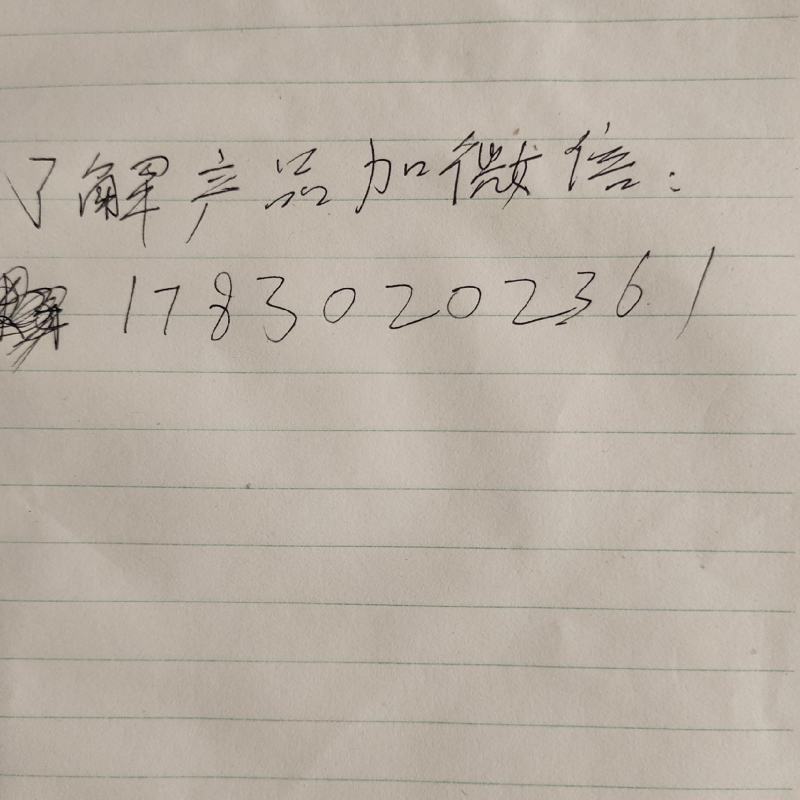 了解产品加微信:
17830202361